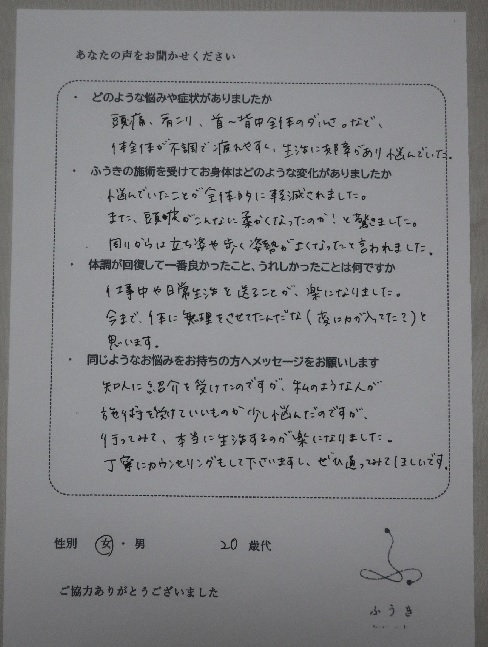 あなたの声をお聞かせください
・ どのような悩みや症状がありましたか
頭痛、肩こり、首〜背中全体のダルさ。など、
体全体が不調で疲れやすく、生活に支障があり悩んでいた。
・ ふうきの施術を受けてお身体はどのような変化がありましたか
悩んでいたことが全体的に軽減されました。
また、頭皮がこんなに柔かくなったのか!と驚きました。
周りからは立ち姿や歩く姿勢がよくなったと言われました。
・ 体調が回復して一番良かったこと、うれしかったことは何ですか
仕事中や日常生活を送ることが、楽になりました。
今まで、体に無理をさせてたんだな(変に力が入ってた?)と
思います。
・ 同じようなお悩みをお持ちの方へメッセージをお願いします
知人に紹介を受けたのですが、私のような人が
施術を受けていいものか少し悩んだのですが、
行ってみて、本当に生活するのが楽になりました。
丁寧にカウンセリングもして下さいますし、ぜひ通ってみてほしいです。
性別 女・男 20 歳代
ご協力ありがとうございました
ふうき